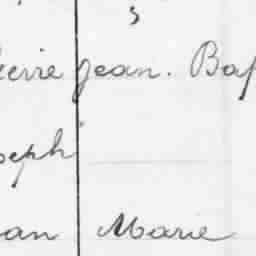 s
ierre Jean. Bap
oseph
an Marie